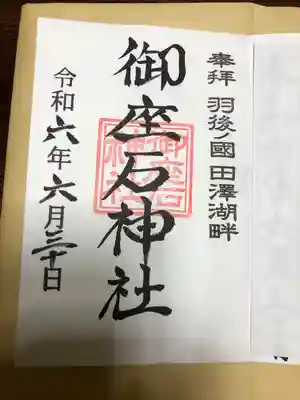 奉拝 羽後ノ國田澤湖畔
御座石神社
御座石
神社
令和六年六月三十日